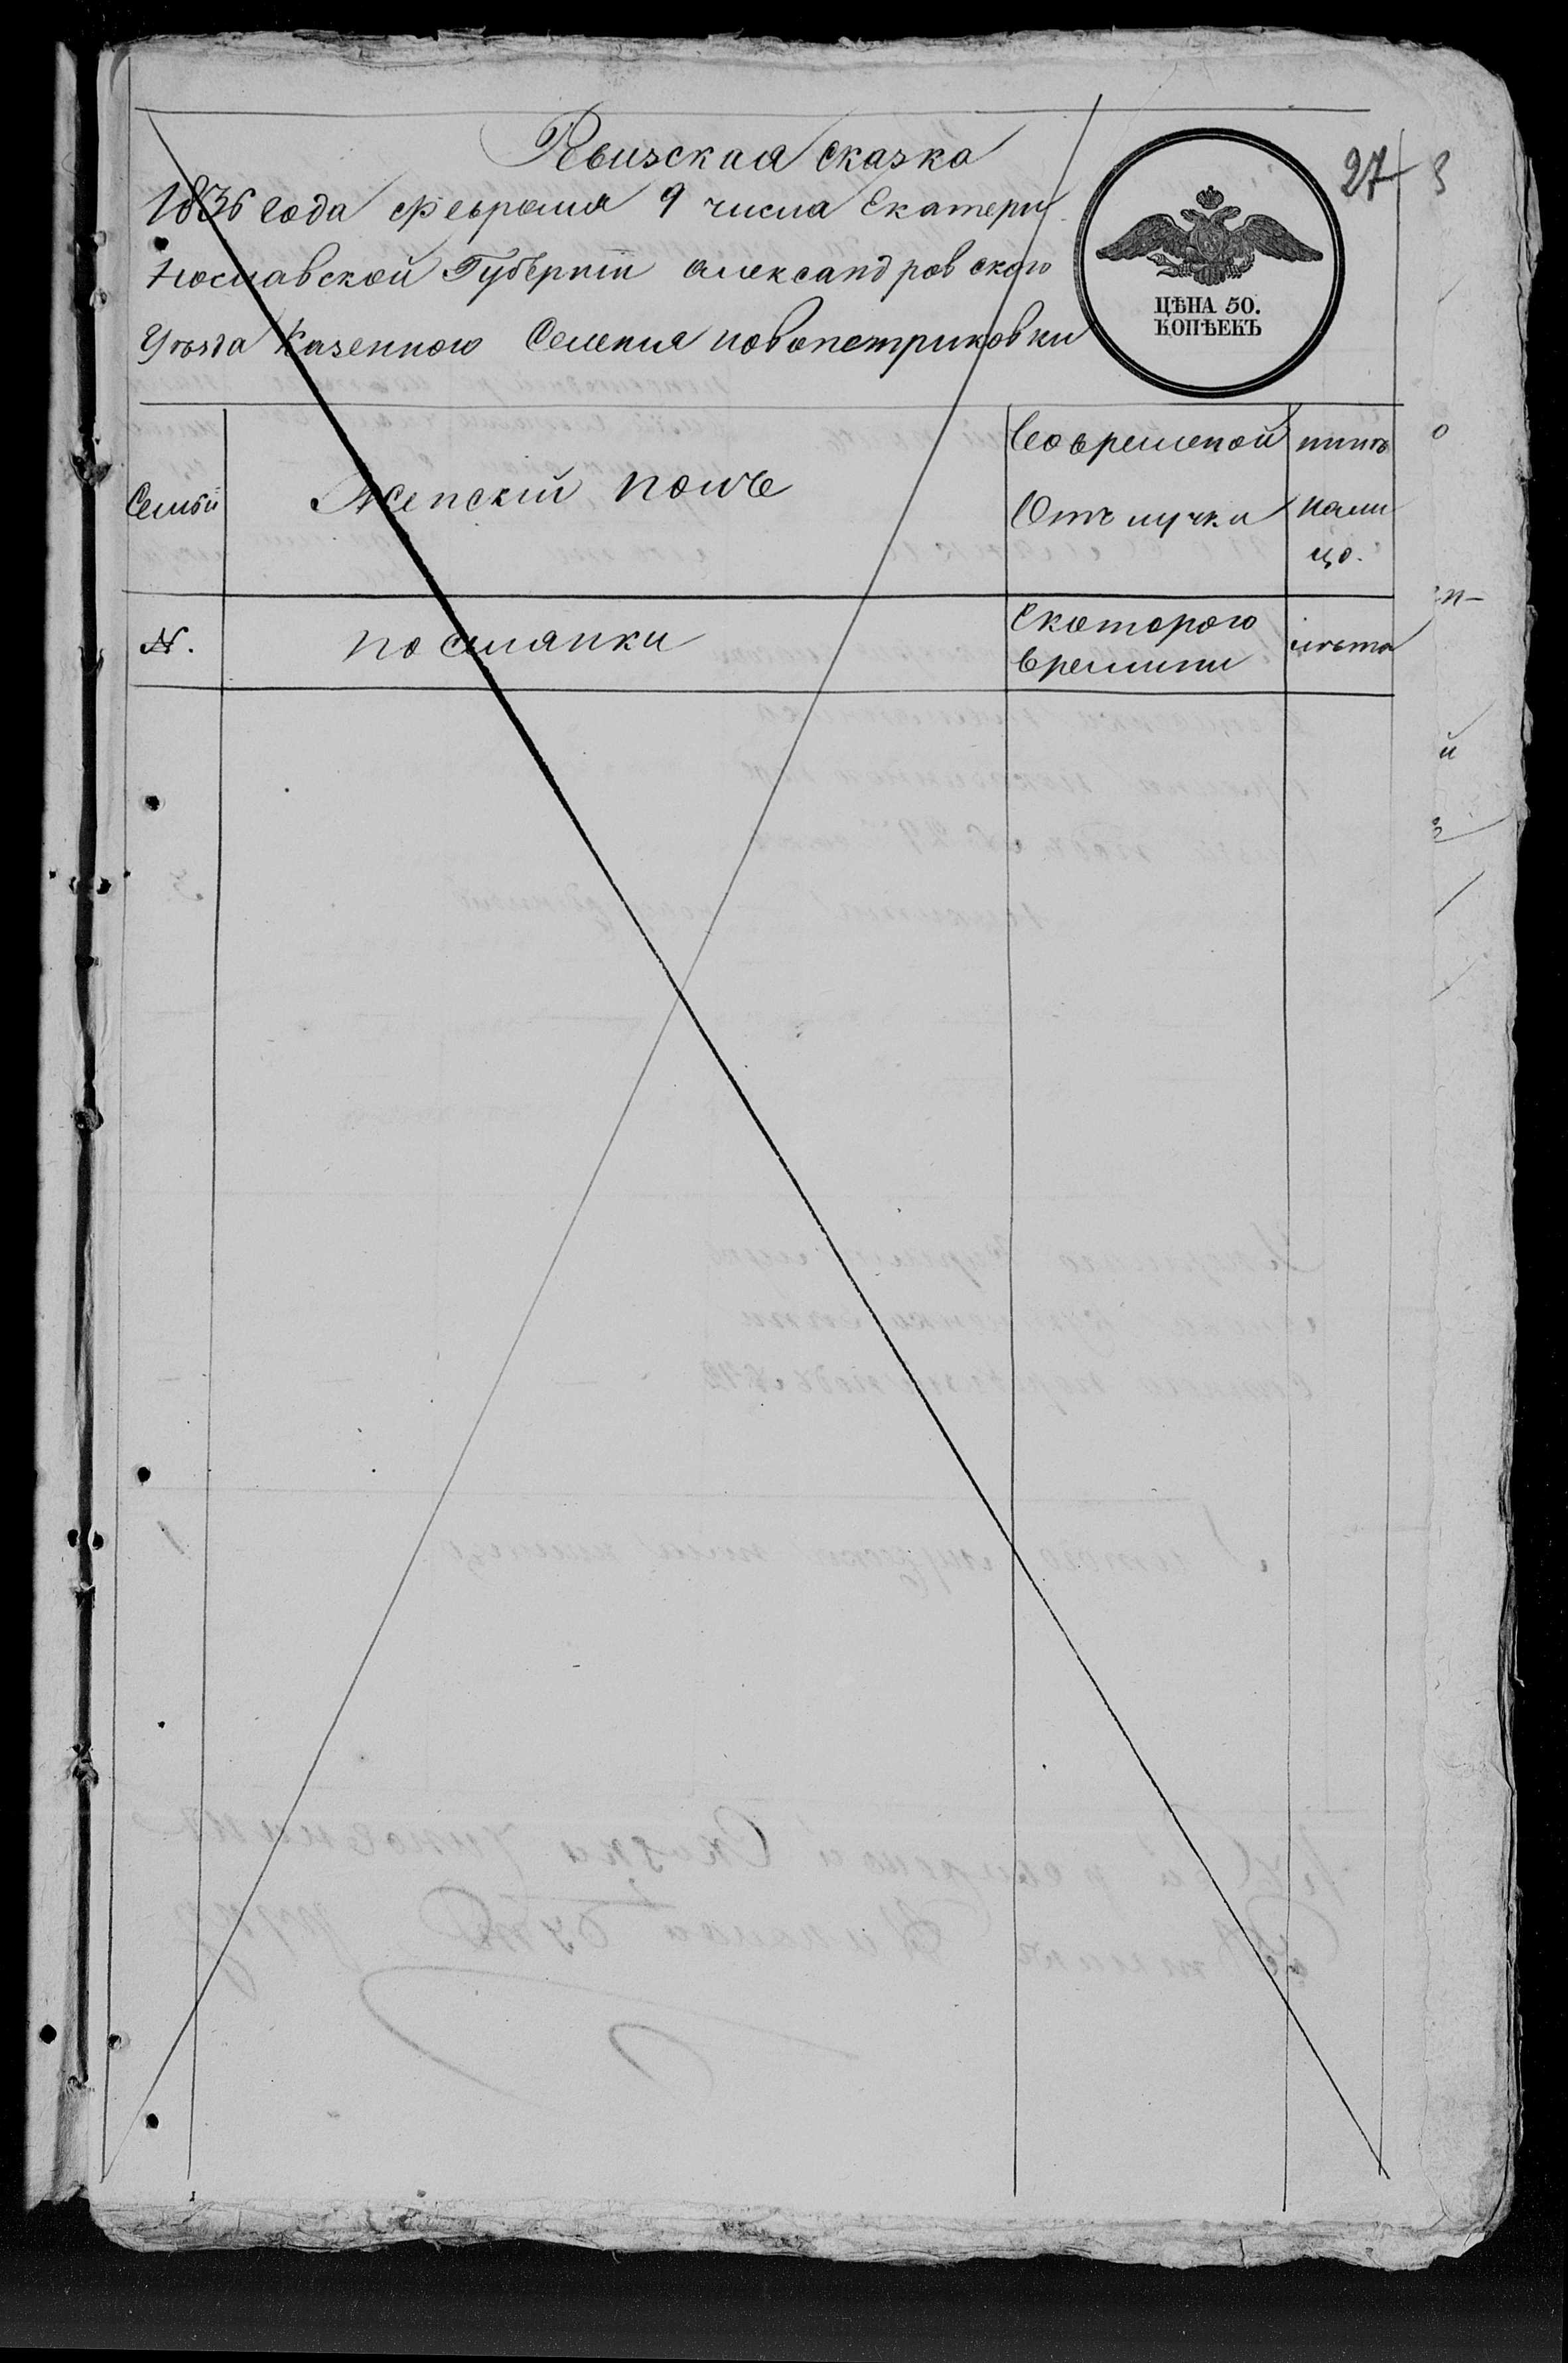 Ревизская сказка
27
1836 года февраля 9 числа Екатери
нославской Губерніи александровского
Уѣзда Казенного Селения новопетриковки
ЦѢНА 50.
КОПѢЕКЪ
Семьи
Женскій полъ
Вовременой
Отълучки
нынѣ
нали
цо.
N.
поселянки
Скоторого
времини
лѣта